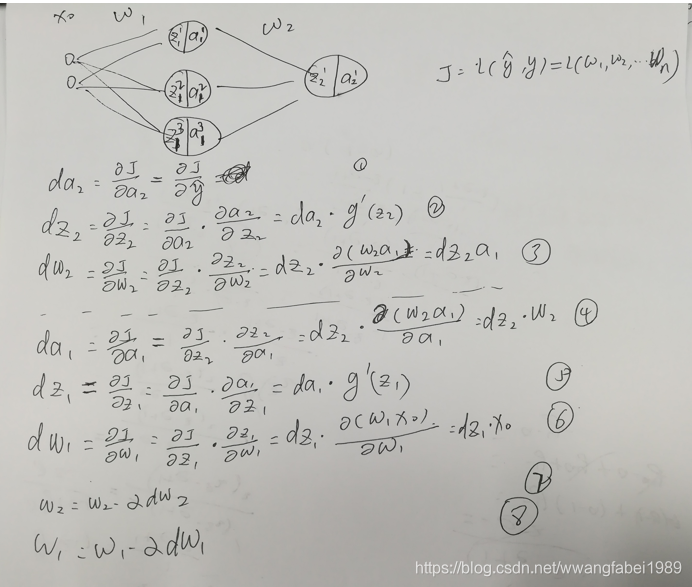 x₀ w₁ w₂
z₁¹ a₁¹
z₁² a₁²
z₁³ a₁³
z₂¹ a₂¹
J = L(ŷ, y) = L(w₁, w₂, ... wₙ)
da₂ = ∂J/∂a₂ = ∂J/∂ŷ = ①
dz₂ = ∂J/∂z₂ = ∂J/∂a₂ · ∂a₂/∂z₂ = da₂ · g'(z₂) ②
dw₂ = ∂J/∂w₂ = ∂J/∂z₂ · ∂z₂/∂w₂ = dz₂ · ∂(w₂a₁)/∂w₂ = dz₂a₁ ③
da₁ = ∂J/∂a₁ = ∂J/∂z₂ · ∂z₂/∂a₁ = dz₂ · ∂(w₂a₁)/∂a₁ = dz₂ · w₂ ④
dz₁ = ∂J/∂z₁ = ∂J/∂a₁ · ∂a₁/∂z₁ = da₁ · g'(z₁) ⑤
dw₁ = ∂J/∂w₁ = ∂J/∂z₁ · ∂z₁/∂w₁ = dz₁ · ∂(w₁x₀)/∂w₁ = dz₁ · x₀ ⑥
w₂ = w₂ - 2dw₂ ⑦
w₁ = w₁ - 2dw₁ ⑧
https://blog.csdn.net/wwangfabei1989